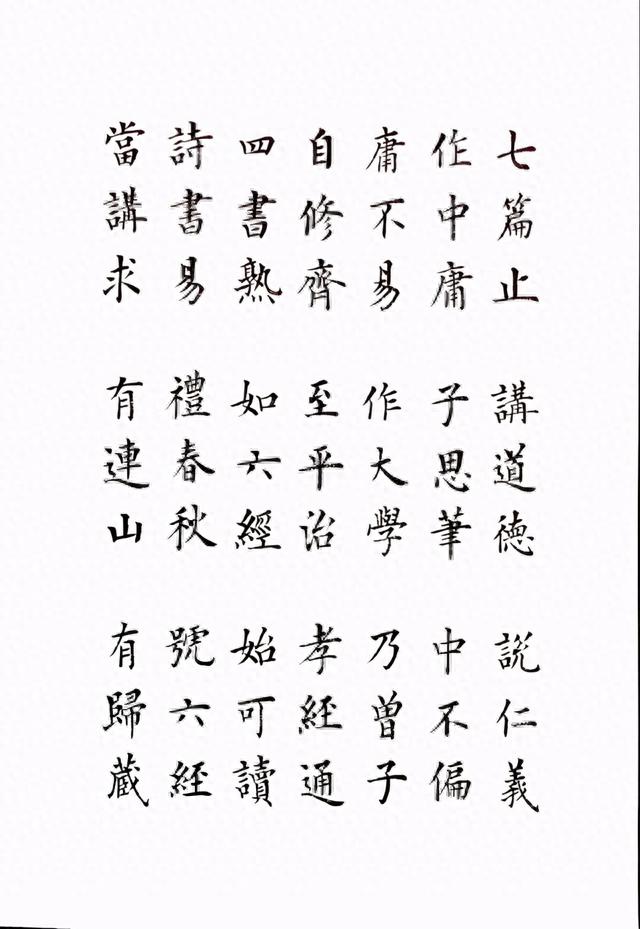 七篇止 講道德 説仁義
作中庸 子思筆 中不偏
庸不易 作大學 乃曾子
自修齊 至平治 孝經通
四書熟 如六經 始可讀
詩書易 禮春秋 號六經
當講求 有連山 有歸蔵